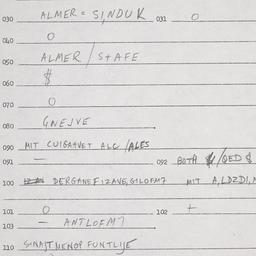 030 ALMER = SINDUK 031 0
040 0
050 ALMER / STAFE
060 $
070 0
080 GNEJVE
090 MIT CUIGAAVET ALC /ALES
091 — 092 BOTH $/QED $
100 DERGANEFIZAVE, GILOFM7 MIT A, LDZDI,
101 0 102 +
103 — ANTLOFM7
110 SINAJTMENOP FUNTLIJE